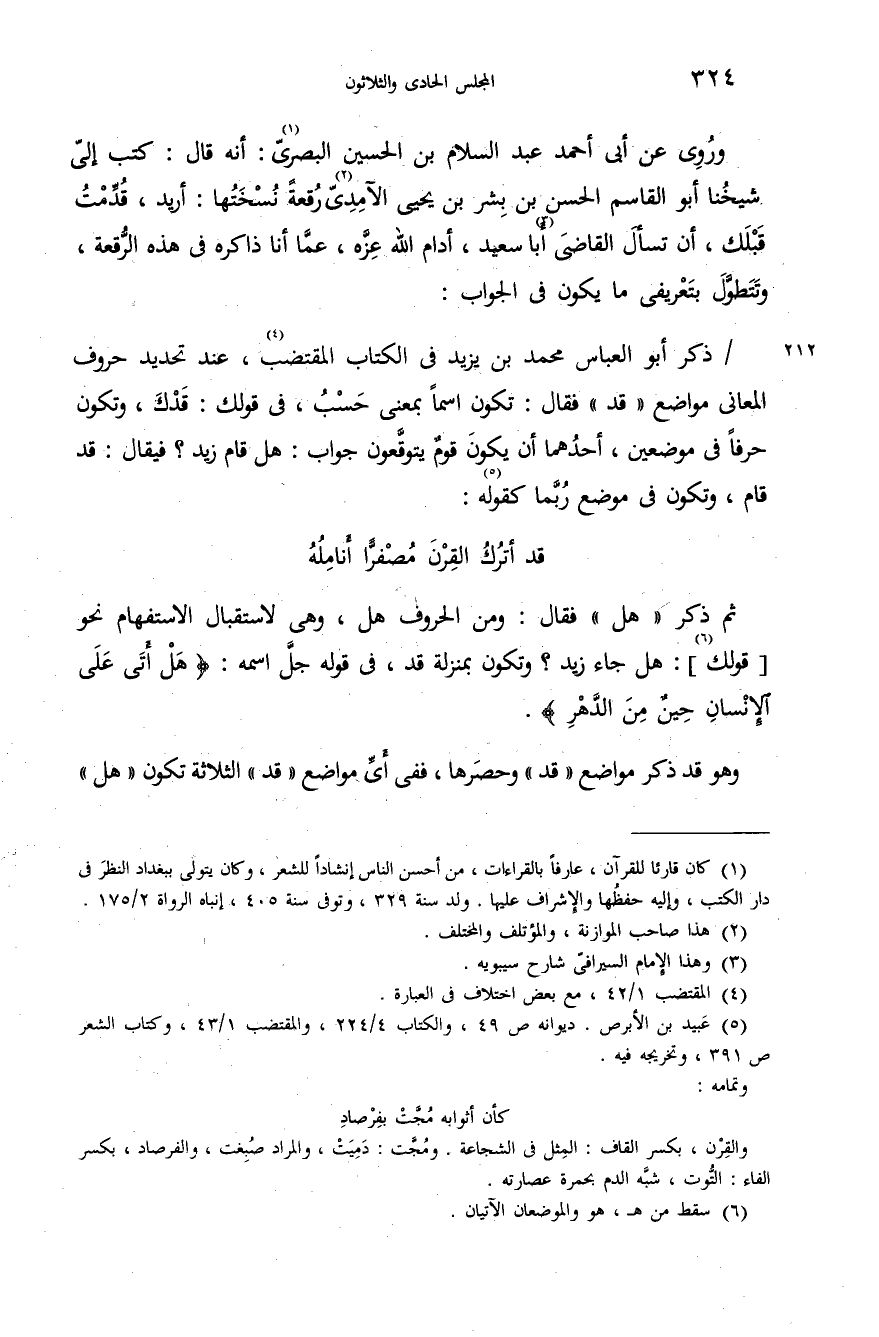 ٣٢٤ المجلس الحادى والثلاثون
ورُوِى عن أبى أحمد عبد السلام بن الحسين البصرىّ(١) : أنه قال : كتب إلىّ
شيخُنا أبو القاسم الحسن بن بِشر بن يحيى الآمِدِىّ(٢) رُقعةً نُسْخَتُها : أريد ، قُدِّمْتُ
قَبْلَك ، أن تسألَ القاضىَ أبا سعيد(٣) ، أدام الله عِزَّه ، عمَّا أنا ذاكره فى هذه الرُّقعة ،
وتَتَطوَّلَ بتَعْريفى ما يكون فى الجواب :
٢١٢ / ذكر أبو العباس محمد بن يزيد فى الكتاب المقتضب(٤) ، عند تحديد حروف
المعانى مواضع « قد » فقال : تكون اسماً بمعنى حَسْبُ ، فى قولك : قَدْكَ ، وتكون
حرفاً فى موضعين ، أحدُهما أن يكونَ قومٌ يتوقَّعون جواب : هل قام زيد ؟ فيقال : قد
قام ، وتكون فى موضع رُبَّما كقوله(٥) :
قد أترُكُ القِرْنَ مُصْفرًّا أنامِلُهُ
ثم ذكر « هل » فقال : ومن الحروف هل ، وهى لاستقبال الاستفهام نحو
[ قولك ](٦) : هل جاء زيد ؟ وتكون بمنزلة قد ، فى قوله جلَّ اسمه : ﴿ هَلْ أَتَى عَلَى
ٱلْإِنْسانِ حِينٌ مِنَ الدَّهْرِ ﴾ .
وهو قد ذكر مواضع « قد » وحصرَها ، ففى أَىِّ مواضع « قد » الثلاثة تكون « هل »
(١) كان قارئا للقرآن ، عارفاً بالقراءات ، من أحسن الناس إنشاداً للشعر ، وكان يتولى ببغداد النظرَ فى
دار الكتب ، وإليه حفظُها والإشراف عليها . ولد سنة ٣٢٩ ، وتوفى سنة ٤٠٥ ، إنباه الرواة ١٧٥/٢ .
(٢) هذا صاحب الموازنة ، والمؤتلف والمختلف .
(٣) وهذا الإمام السيرافىّ شارح سيبويه .
(٤) المقتضب ٤٢/١ ، مع بعض اختلاف فى العبارة .
(٥) عَبيد بن الأبرص . ديوانه ص ٤٩ ، والكتاب ٢٢٤/٤ ، والمقتضب ٤٣/١ ، وكتاب الشعر
ص ٣٩١ ، وتخريجه فيه .
وتمامه :
كأن أثوابه مُجَّتْ بفِرْصادِ
والقِرْن ، بكسر القاف : المِثل فى الشجاعة . ومُجَّت : دَمِيَتْ ، والمراد صُبِغت ، والفرصاد ، بكسر
الفاء : التُّوت ، شبَّه الدم بحمرة عصارته .
(٦) سقط من هـ ، هو والموضعان الآتيان .